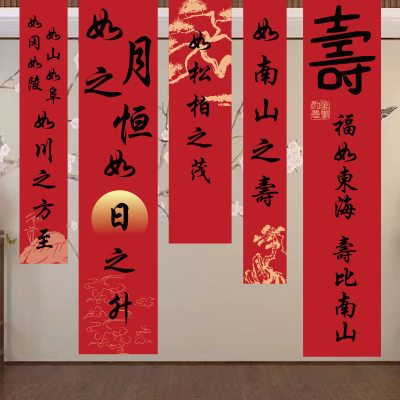 壽
福如東海 壽比南山
如南山之壽
如松柏之茂
如月之恒
如日之升
如山如阜
如冈如陵
如川之方至